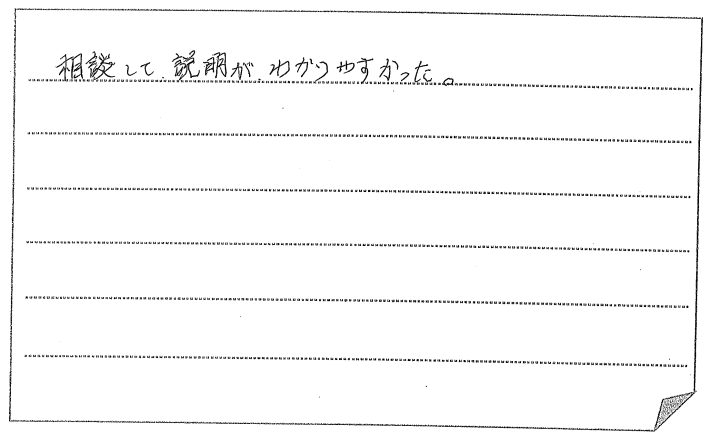 相談して、説明が、わかりやすかった。